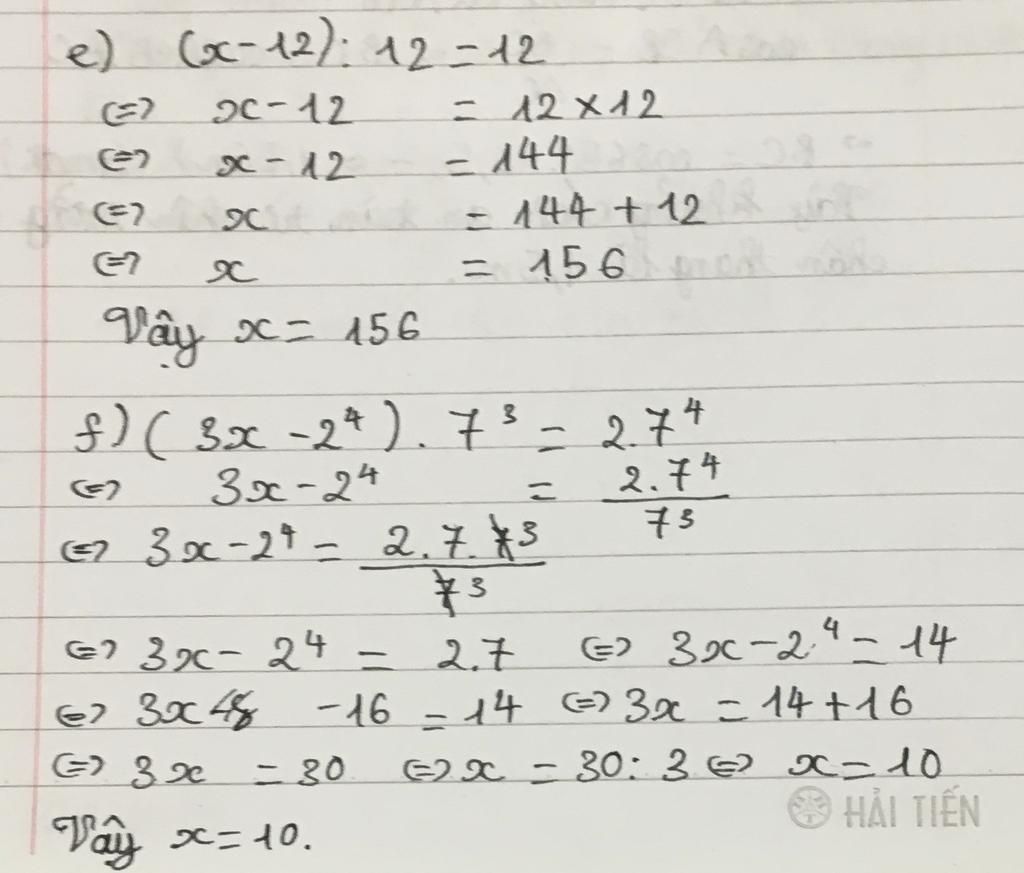 e) (x-12): 12 = 12
⇔ x - 12 = 12 × 12
⇔ x - 12 = 144
⇔ x = 144 + 12
⇔ x = 156
Vậy x = 156
f) (3x - 2⁴). 7³ = 2.7⁴
⇔ 3x - 2⁴ = 2.7⁴ / 7³
⇔ 3x - 2⁴ = 2.7.7³ / 7³
⇔ 3x - 2⁴ = 2.7 ⇔ 3x - 2⁴ = 14
⇔ 3x - 16 = 14 ⇔ 3x = 14 + 16
⇔ 3x = 30 ⇔ x = 30: 3 ⇔ x = 10
HẢI TIẾN
Vậy x = 10.